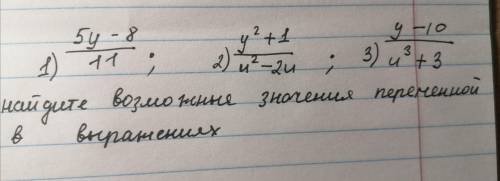 1) (5y - 8)/11 ; 2) (y² + 1)/(u² - 2u) ; 3) (y - 10)/(u³ + 3)
найдите возможные значения переменной
в выражениях